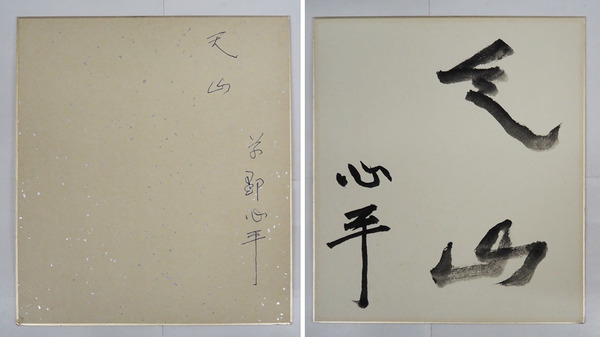 天
山
草野心平
天
山
心平